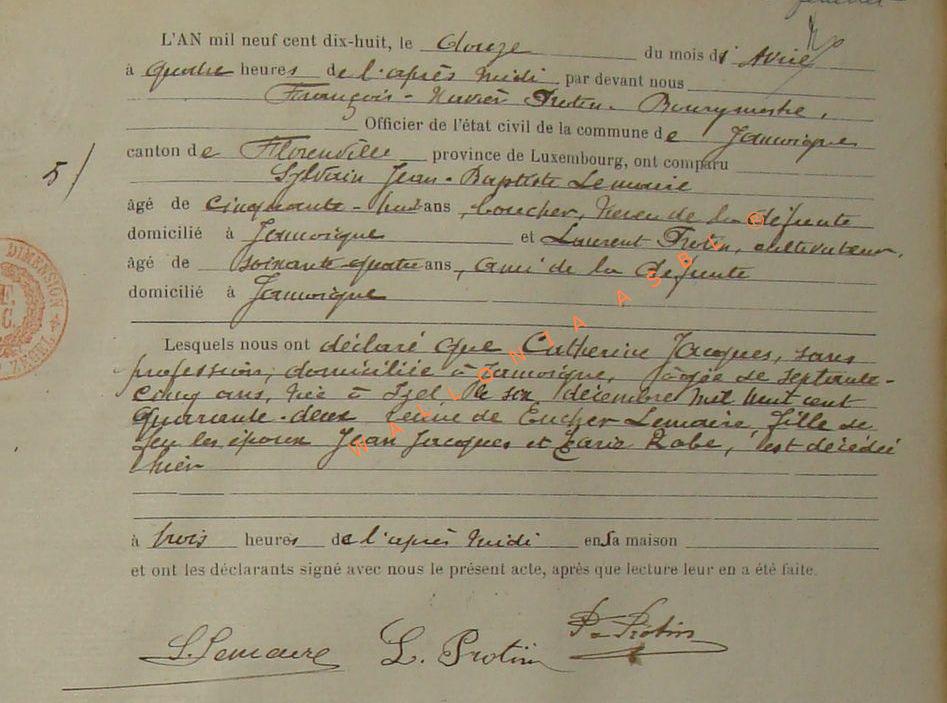 L'AN mil neuf cent dix-huit, le douze du mois d' Avril
à quatre heures de l'après midi par devant nous
François-Xavier Protin, Bourgmestre,
Officier de l'état civil de la commune de Jamoigne
canton de Florenville province de Luxembourg, ont comparu
5/
Sylvain Jean-Baptiste Lemaire
âgé de cinquante-huit ans, boucher, neveu de la défunte
domicilié à Jamoigne et Laurent Protin, cultivateur,
âgé de soixante quatre ans, ami de la défunte
domicilié à Jamoigne
DIMENSION
Lesquels nous ont déclaré que Catherine Jacques, sans
profession, domiciliée à Jamoigne, âgée de septante-
cinq ans, née à Izel, le six décembre mil huit cent
quarante-deux veuve de Eucher Lemaire, fille de
feu les époux Jean Jacques et Robe, est décédée
hier
à trois heures de l'après midi en sa maison
et ont les déclarants signé avec nous le présent acte, après que lecture leur en a été faite.
S. Lemaire L. Protin Protin
WALLONIA ASBL ©